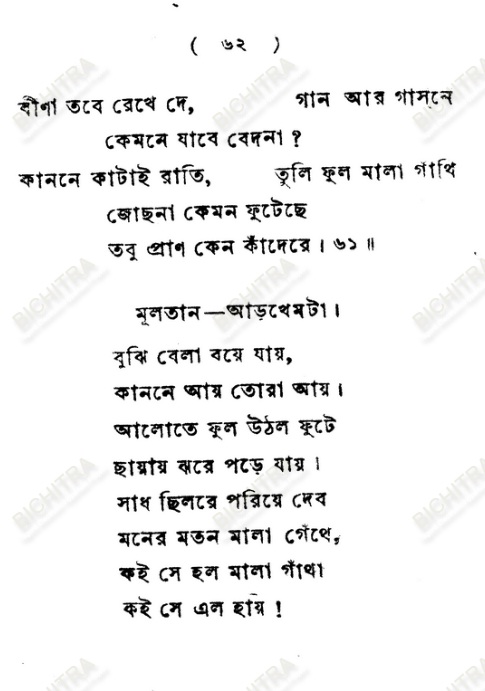 ( ৬২ )
বীণা তবে রেখে দে, গান আর গাস্‌নে
কেমনে যাবে বেদনা ?
কাননে কাটাই রাতি, তুলি ফুল মালা গাঁথি
জোছনা কেমন ফুটেছে
তবু প্রাণ কেন কাঁদেরে । ৬১ ॥
মূলতান—আড়খেমটা ।
বুঝি বেলা বয়ে যায়,
কাননে আয় তোরা আয় ।
আলোতে ফুল উঠল ফুটে
ছায়ায় ঝরে পড়ে যায় ।
সাধ ছিলরে পরিয়ে দেব
মনের মতন মালা গেঁথে,
কই সে হল মালা গাঁথা
কই সে এল হায় !
BICHITRA